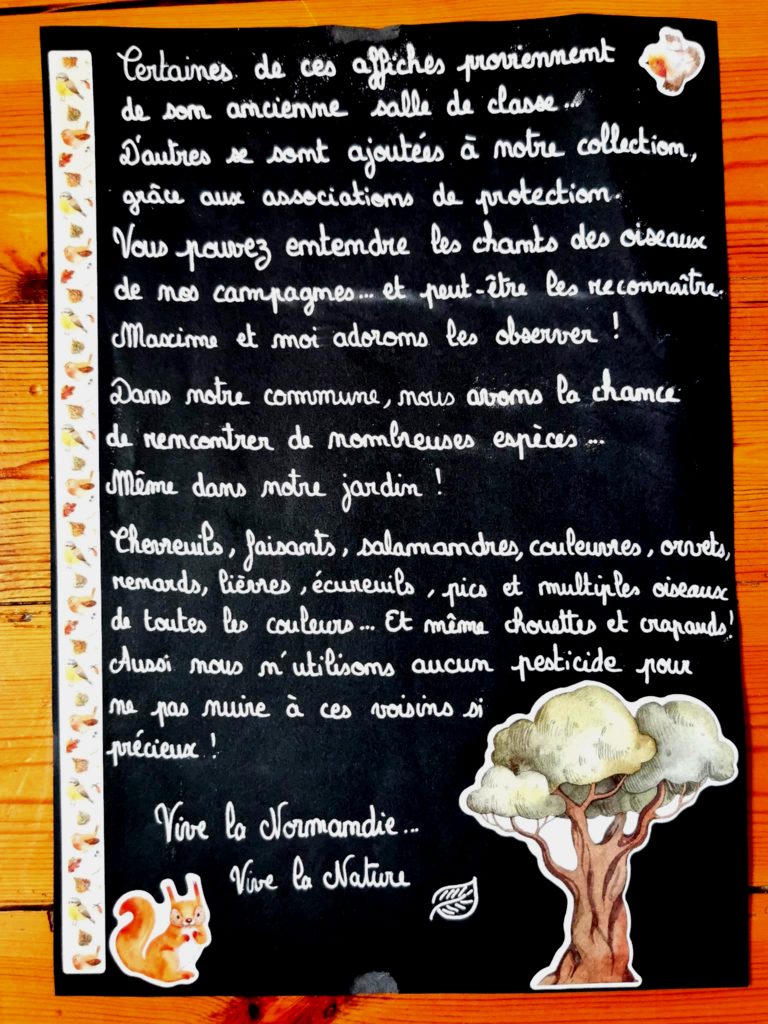 Certaines de ces affiches proviennent
de son ancienne salle de classe...
D'autres se sont ajoutées à notre collection,
grâce aux associations de protection.
Vous pouvez entendre les chants des oiseaux
de nos campagnes... et peut-être les reconnaître.
Maxime et moi adorons les observer !
Dans notre commune, nous avons la chance
de rencontrer de nombreuses espèces...
Même dans notre jardin !
Chevreuils, faisants, salamandres, couleuvres, orvets,
renards, lièvres, écureuils, pics et multiples oiseaux
de toutes les couleurs... Et même chouettes et crapauds!
Aussi nous n'utilisons aucun pesticide pour
ne pas nuire à ces voisins si
précieux !
Vive la Normandie...
Vive la Nature